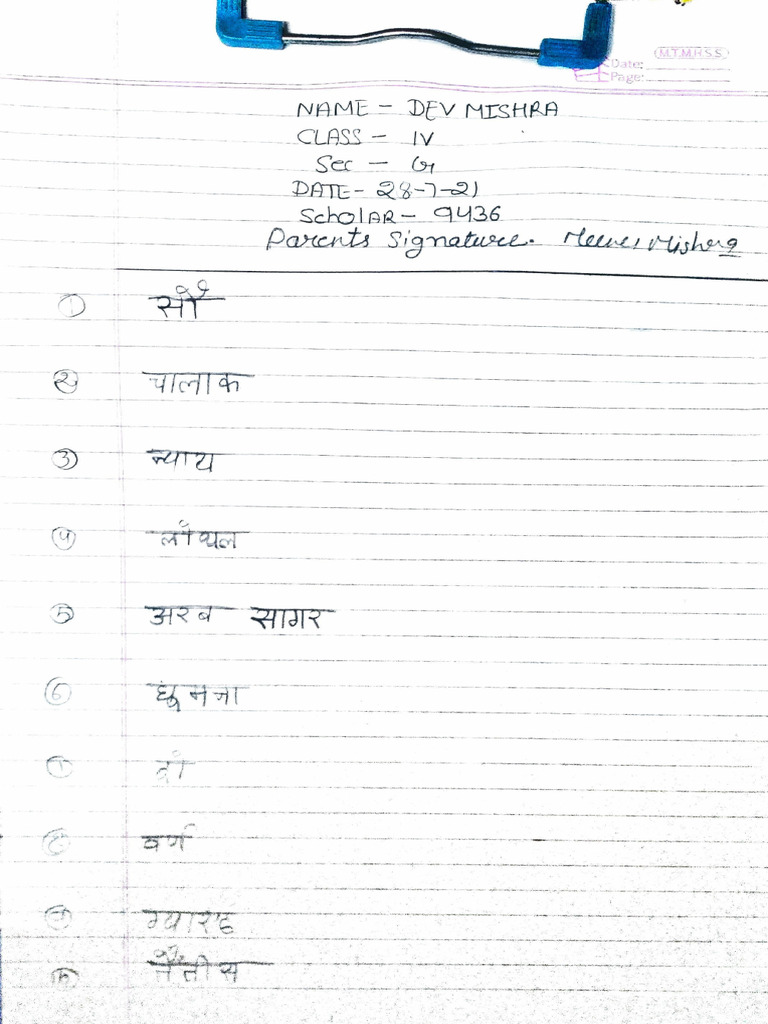 M.T.M.H.S.S
Date:
Page:
NAME - DEV MISHRA
CLASS - IV
Sec - G
DATE - 28-7-21
ScholAR - 9436
Parents Signature. Mishra
① सौ
② चालाक
③ न्याय
④
⑤ अरब सागर
⑥
⑦ दो
⑧ वर्ण
⑨ ग्यारह
⑩ तैंतीस